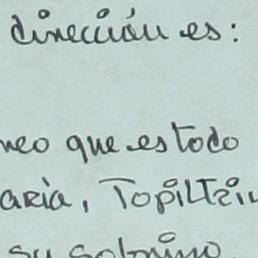 dirección es:
neo que es todo
aria, Topiltzin
su sobrino.